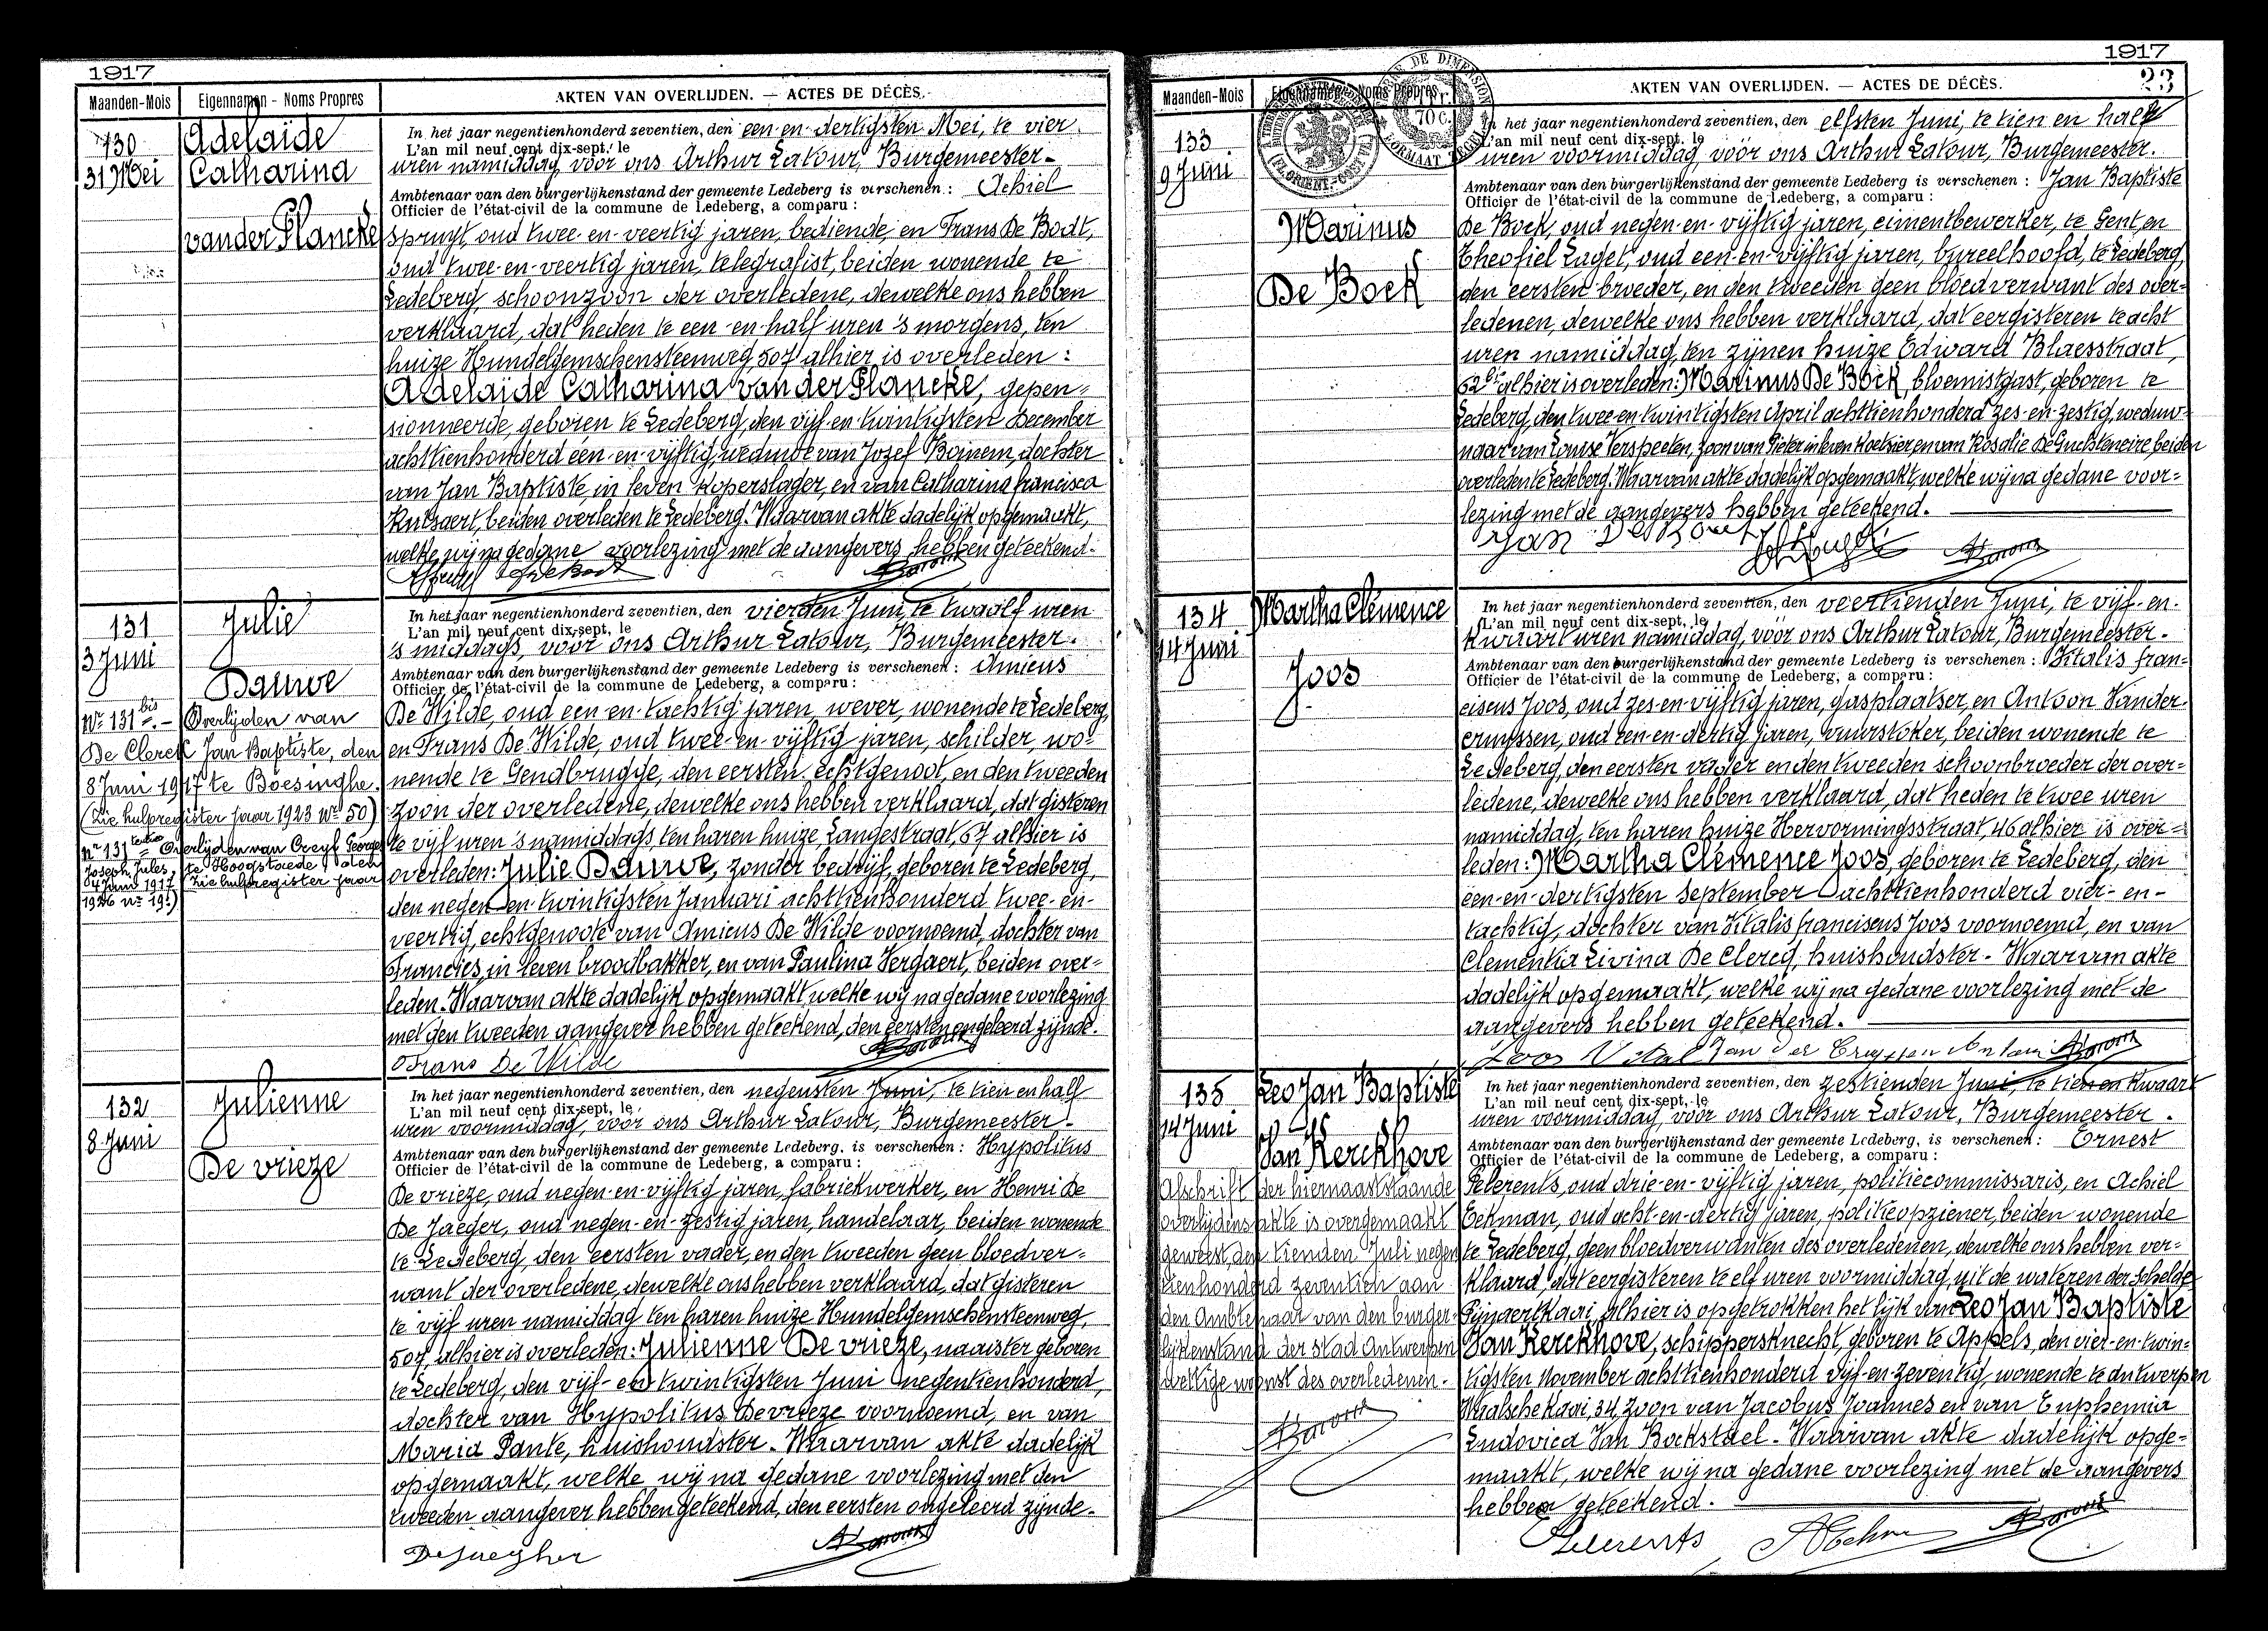 1917
Maanden-Mois
Eigennamen - Noms Propres
AKTEN VAN OVERLIJDEN. — ACTES DE DÉCÈS.
130
31 Mei
Adelaïde
Catharina
van der Plancke
In het jaar negentienhonderd zeventien, den een-en-dertigsten Mei, te vier
L'an mil neuf cent dix-sept, le
uren namiddag, vóór ons Arthur Latour, Burgemeester-
Ambtenaar van den burgerlijkenstand der gemeente Ledeberg is verschenen : Achiel
Officier de l'état-civil de la commune de Ledeberg, a comparu :
Spruyt, oud twee-en-veertig jaren, bediende, en Frans De Bodt,
oud twee-en-veertig jaren, telegrafist, beiden wonende te
Ledeberg, schoonzoon der overledene, dewelke ons hebben
verklaard, dat heden te een-en-half uren 's morgens, ten
huize Hundelgemschensteenweg, 507 alhier is overleden :
Adelaïde Catharina van der Plancke, gepen=
sionneerde, geboren te Ledeberg, den vijf-en-twintigsten December
achttienhonderd een-en-vijftig, weduwe van Jozef Boinem, dochter
van Jan Baptiste, in leven koperslager, en van Catharina francisca
Rutsaert, beiden overleden te Ledeberg. Waarvan akte dadelijk opgemaakt,
welke wij na gedane voorlezing met de aangevers hebben geteekend.
131
3 Juni
Julie
Dauwe
Nr 131 bis .- Overlijden van
De Clerck Jan Baptiste, den
8 Juni 1917 te Boesinghe.
(Zie hulpregister jaar 1923 nr 50)
nr 131 tertio Overlijden van Creyf Georges
Joseph Jules, te Hoogstaede den
4 Juni 1917 Zie hulpregister jaar
1926 nr 19.)
In het jaar negentienhonderd zeventien, den vierden Juni, te twaalf uren
L'an mil neuf cent dix-sept, le
's middags, vóór ons Arthur Latour, Burgemeester.
Ambtenaar van den burgerlijkenstand der gemeente Ledeberg is verschenen : Amicus
Officier de l'état-civil de la commune de Ledeberg, a comparu :
De Wilde, oud een-en-tachtig jaren, wever, wonende te Ledeberg,
en Frans De Wilde, oud twee-en-vijftig jaren, schilder, wo=
nende te Gendbrugge, den eersten echtgenoot, en den tweeden
zoon der overledene, dewelke ons hebben verklaard, dat gisteren
te vijf uren 's namiddags, ten haren huize Langestraat, 67 alhier is
overleden: Julie Dauwe, zonder bedrijf, geboren te Ledeberg,
den negen-en-twintigsten Januari achttienhonderd twee-en-
veertig, echtgenoote van Amicus De Wilde voornoemd, dochter van
Francies, in leven broodbakker, en van Paulina Vergaert, beiden over=
leden. Waarvan akte dadelijk opgemaakt, welke wij na gedane voorlezing
met den tweeden aangever hebben geteekend, den eersten ongeleerd zijnde.
Frans De Wilde
132
8 Juni
Julienne
De vrieze
In het jaar negentienhonderd zeventien, den negensten Juni, te tien en half
L'an mil neuf cent dix-sept, le
uren voormiddag, vóór ons Arthur Latour, Burgemeester-
Ambtenaar van den burgerlijkenstand der gemeente Ledeberg, is verschenen : Hypolitus
Officier de l'état-civil de la commune de Ledeberg, a comparu :
De vrieze, oud negen-en-vijftig jaren, fabriekwerker, en Henri De
De Jaeger, oud negen-en-zestig jaren, handelaar, beiden wonende
te Ledeberg, den eersten vader, en den tweeden geen bloedver=
want der overledene, dewelke ons hebben verklaard, dat gisteren
te vijf uren namiddag ten haren huize Hundelgemschensteenweg,
507, alhier is overleden: Julienne De vrieze, naaister geboren
te Ledeberg, den vijf-en-twintigsten Juni negentienhonderd,
dochter van Hypolitus De vrieze voornoemd, en van
Maria Pante, huishoudster. Waarvan akte dadelijk
opgemaakt, welke wij na gedane voorlezing met den
tweeden aangever hebben geteekend, den eersten ongeleerd zijnde.
DeJaegher
1917
23
Maanden-Mois
Eigennamen - Noms Propres
AKTEN VAN OVERLIJDEN. — ACTES DE DÉCÈS.
133
9 Juni
Marinus
De Bock
In het jaar negentienhonderd zeventien, den elfsten Juni, te tien en half
L'an mil neuf cent dix-sept. le
uren voormiddag vóór ons Arthur Latour, Burgemeester.
Ambtenaar van den burgerlijkenstand der gemeente Ledeberg is verschenen : Jan Baptiste
Officier de l'état-civil de la commune de Ledeberg, a comparu :
De Bock, oud negen-en-vijftig jaren, cimentbewerker, te Gent, en
Theofiel Lagel, oud een-en-vijftig jaren, bureelhoofd, te Ledeberg,
den eersten broeder, en den tweeden geen bloedverwant des over=
ledenen, dewelke ons hebben verklaard, dat eergisteren te acht
uren namiddag, ten zijnen huize Edward Blaesstraat,
62 bis alhier is overleden: Marinus De Bock, bloemistgast, geboren te
Ledeberg, den twee-en-twintigsten April achttienhonderd zes-en-zestig, weduw=
naar van Louise Verspeelen, zoon van Pieter in leven koetsier en van Rosalie De Guchteneire, beiden
overleden te Ledeberg. Waarvan akte dadelijk opgemaakt, welke wij na gedane voor=
lezing met de aangevers hebben geteekend.
134
14 Juni
Martha Clémence
Joos
In het jaar negentienhonderd zeventien, den veertienden Juni, te vijf-en-
L'an mil neuf cent dix-sept, le
kwaart uren namiddag, vóór ons Arthur Latour, Burgemeester.
Ambtenaar van den burgerlijkenstand der gemeente Ledeberg is verschenen : Vitalis fran=
Officier de l'état-civil de la commune de Ledeberg, a comparu :
ciscus Joos, oud zes-en-vijftig jaren, gasplaatser, en Antoon Vander=
cruyssen, oud een-en-dertig jaren, vuurstoker, beiden wonende te
Ledeberg, den eersten vader en den tweeden schoonbroeder der over=
ledene, dewelke ons hebben verklaard, dat heden te twee uren
namiddag, ten haren huize Hervormingsstraat, 46 alhier is over=
leden: Martha Clémence Joos, geboren te Ledeberg, den
een-en-dertigsten September achttienhonderd vier-en-
tachtig, dochter van Vitalis franciscus Joos voornoemd, en van
Clementia Livina De Clercq, huishoudster. Waarvan akte
dadelijk opgemaakt, welke wij na gedane voorlezing met de
aangevers hebben geteekend.
Joos Vital Van der Cruyssen Antoin
135
14 Juni
Leo Jan Baptiste
Van Kerckhove
Afschrift der hiernaaststaande
overlijdensakte is overgemaakt
geweest, den tienden Juli negen
tienhonderd zeventien aan
den Ambtenaar van den burger-
lijkenstand der stad Antwerpen
wettige woonst des overledenen.
In het jaar negentienhonderd zeventien, den zestienden Juni, te tien en kwaart
L'an mil neuf cent dix-sept, le
uren voormiddag, vóór ons Arthur Latour, Burgemeester.
Ambtenaar van den burgerlijkenstand der gemeente Ledeberg, is verschenen : Ernest
Officier de l'état-civil de la commune de Ledeberg, a comparu :
Gelerents, oud drie-en-vijftig jaren, politiecommissaris, en Achiel
Eekman, oud acht-en-dertig jaren, politieopziener, beiden wonende
te Ledeberg, geen bloedverwanten des overledenen, dewelke ons hebben ver=
klaard, dat eergisteren te elf uren voormiddag, uit de wateren der Schelde
Pijnaertkaai, alhier is opgetrokken het lijk van Leo Jan Baptiste
Van Kerckhove, schippersknecht, geboren te Appels, den vier-en-twin=
tigsten November achttienhonderd vijf-en-zeventig, wonende te Antwerpen
Waalsche Kaai, 34, zoon van Jacobus Joannes en van Euphemia
Ludovica Van Bockstael. Waarvan akte dadelijk opge=
maakt, welke wij na gedane voorlezing met de aangevers
hebben geteekend.